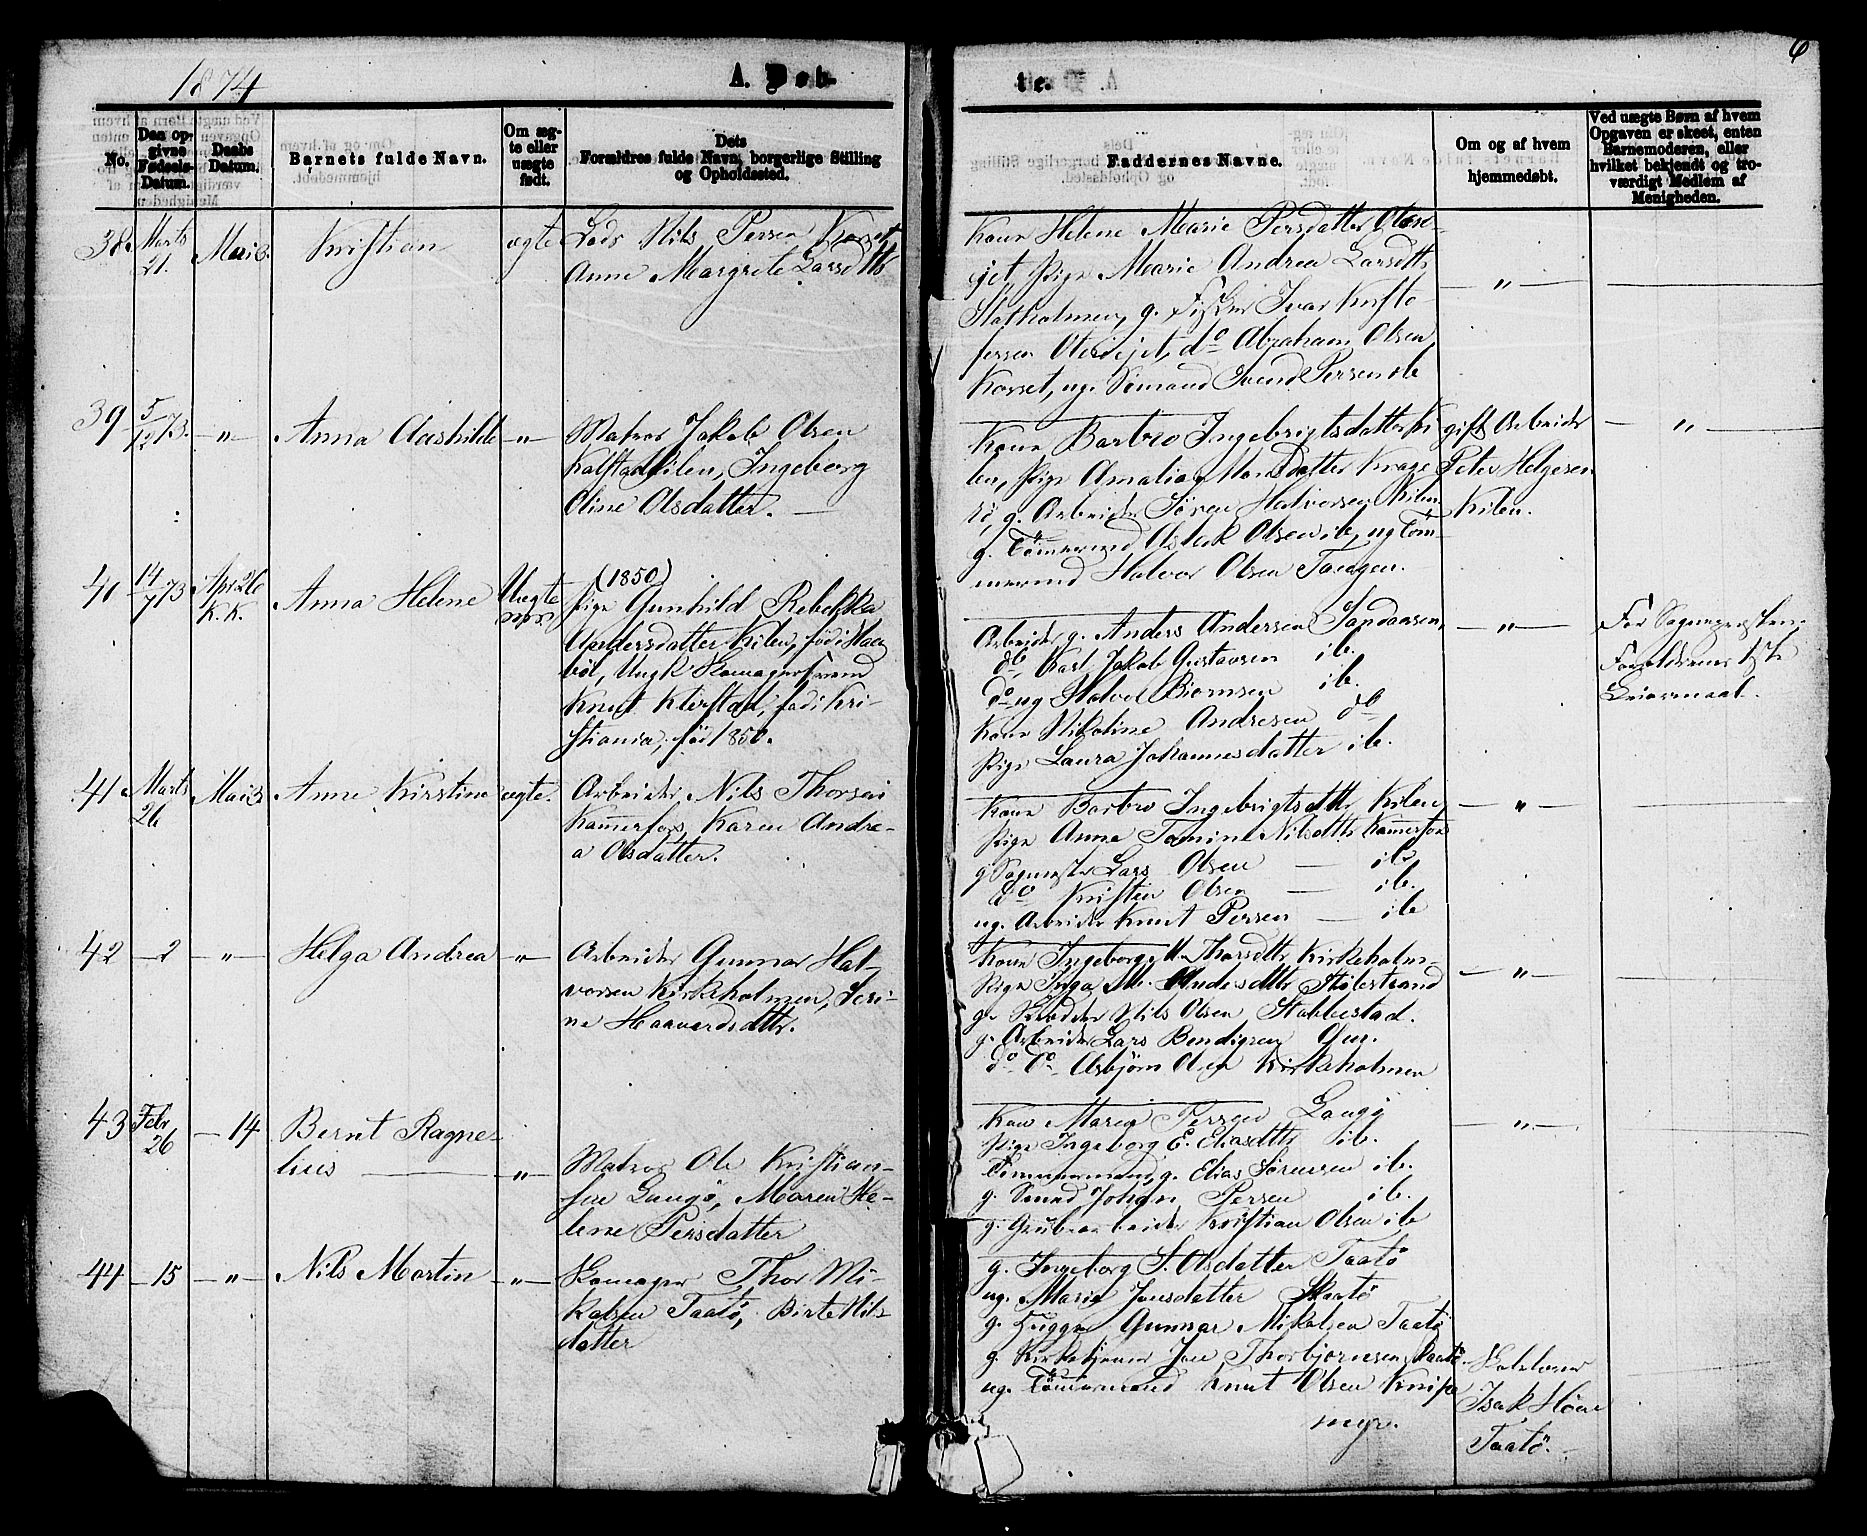 1874
A. Døb-
te.
6
No.
Den op-
givne
Fødsels-
Datum.
Daabs
Datum.
Barnets fulde Navn.
Om æg-
te eller
uægte
født.
Dets
Forældres fulde Navn, borgerlige Stilling
og Opholdssted.
Faddernes Navne.
Om og af hvem
hjemmedøbt.
Ved uægte Børn af hvem
Opgaven er skeet, enten
Barnemoderen, eller
hvilket bekjendt og tro-
værdigt Medlem af
Menigheden.
38. Marts 21. Mai 3. Kristian ægte
Lods Nils Persen Korset
Anne Margrete Larsdttr
Kone Helene Marie Persdatter
Pige Marie Andrea Larsdttr
g. Fisker Ivar Kristo-
fersen do Abraham Olsen
Korset, ug. Sømand Svend Persen ib
39 5/12 73. —"— Anna Aashilde —"—
Matros Jakob Olsen
Kalstadkilen, Ingeborg
Oline Olsdatter.
Kone Barbro Ingebrigtsdatter Ki-
len, Pige Amalia Krage-
rö, g. Arbeider Søren Halvorsen Kilen
g. Tömmermand Aslak Olsen ib, ug Töm-
mermand Halvor Olsen Tangen.
gift Arbeider
Peter Helgesen
Kilen.
"
40 14/7 73 Apr 26 K. K. Anna Helene Uægte
(1850)
Pige Gunhild Rebekka
Andersdatter Kilen, född i
Ungk. Skomagersvend
Knut Klerstad, född i Kri-
stiania, föd 1850.
Arbeider g. Anders Andersen Sandaasen,
do Karl Jakob Gustavsen ib.
do ug Halvor Biørnsen ib.
Kone Nikoline Andresen do
Pige Laura Johannesdatter ib.
—"—
For Sognepræsten.
Forældrenes 1ste
Leiermaal.
41. Marts 26 Mai 3. Anne Kirstine ægte.
Arbeider Nils Thorsen
Kammerfos, Karen Andre-
a Olsdatter.
Kone Barbro Ingebrigtsdttr Kilen,
Pige Anne Tomine Nilsdttr Kammerfos
g Sagmester Lars Olsen — ib
do Kristen Olsen — ib.
ug. Arbeider Knut Persen — ib
—"—
42 —2 —"— Helga Andrea —"—
Arbeider Gunnar Hal-
vorsen Kirkeholmen, Seri-
ne Haavardsdttr.
Kone Ingeborg M. Thorsdttr Kirkeholm-
Pige Inga M. Andersdttr Stölestrand
g. Nils Olsen Stabbestad.
g. Arbeider Lars Bendixen
do do Asbjörn Olsen Kirkeholmen
—"—
43 Febr 26 —14 Bernt Ragne-
lius —"—
Matros Ole Kristian-
sen Langö, Maren He-
lene Persdatter
Kone Maren Persen Langö
Pige Ingeborg E. Eliasdttr ib.
Tömmermand, g. Elias Sörensen ib.
g. Sömand Johan Persen ib.
g. Grubearbeider Kristian Olsen ib
—"—
44 —15 —"— Nils Martin —"—
Skomager Thor Mi-
kalsen Taatö, Birte Nils-
datter
g. Ingeborg S. Olsdatter Taatö
ug. Marie Jensdatter Skaatö
g. Gunnar Mikalsen Taatö
g. Kirketjener Jon Thorbjørnsen Skaatö
ug. Tömmermand Knut Olsen Knipe
myr.
Isak
Taatö.